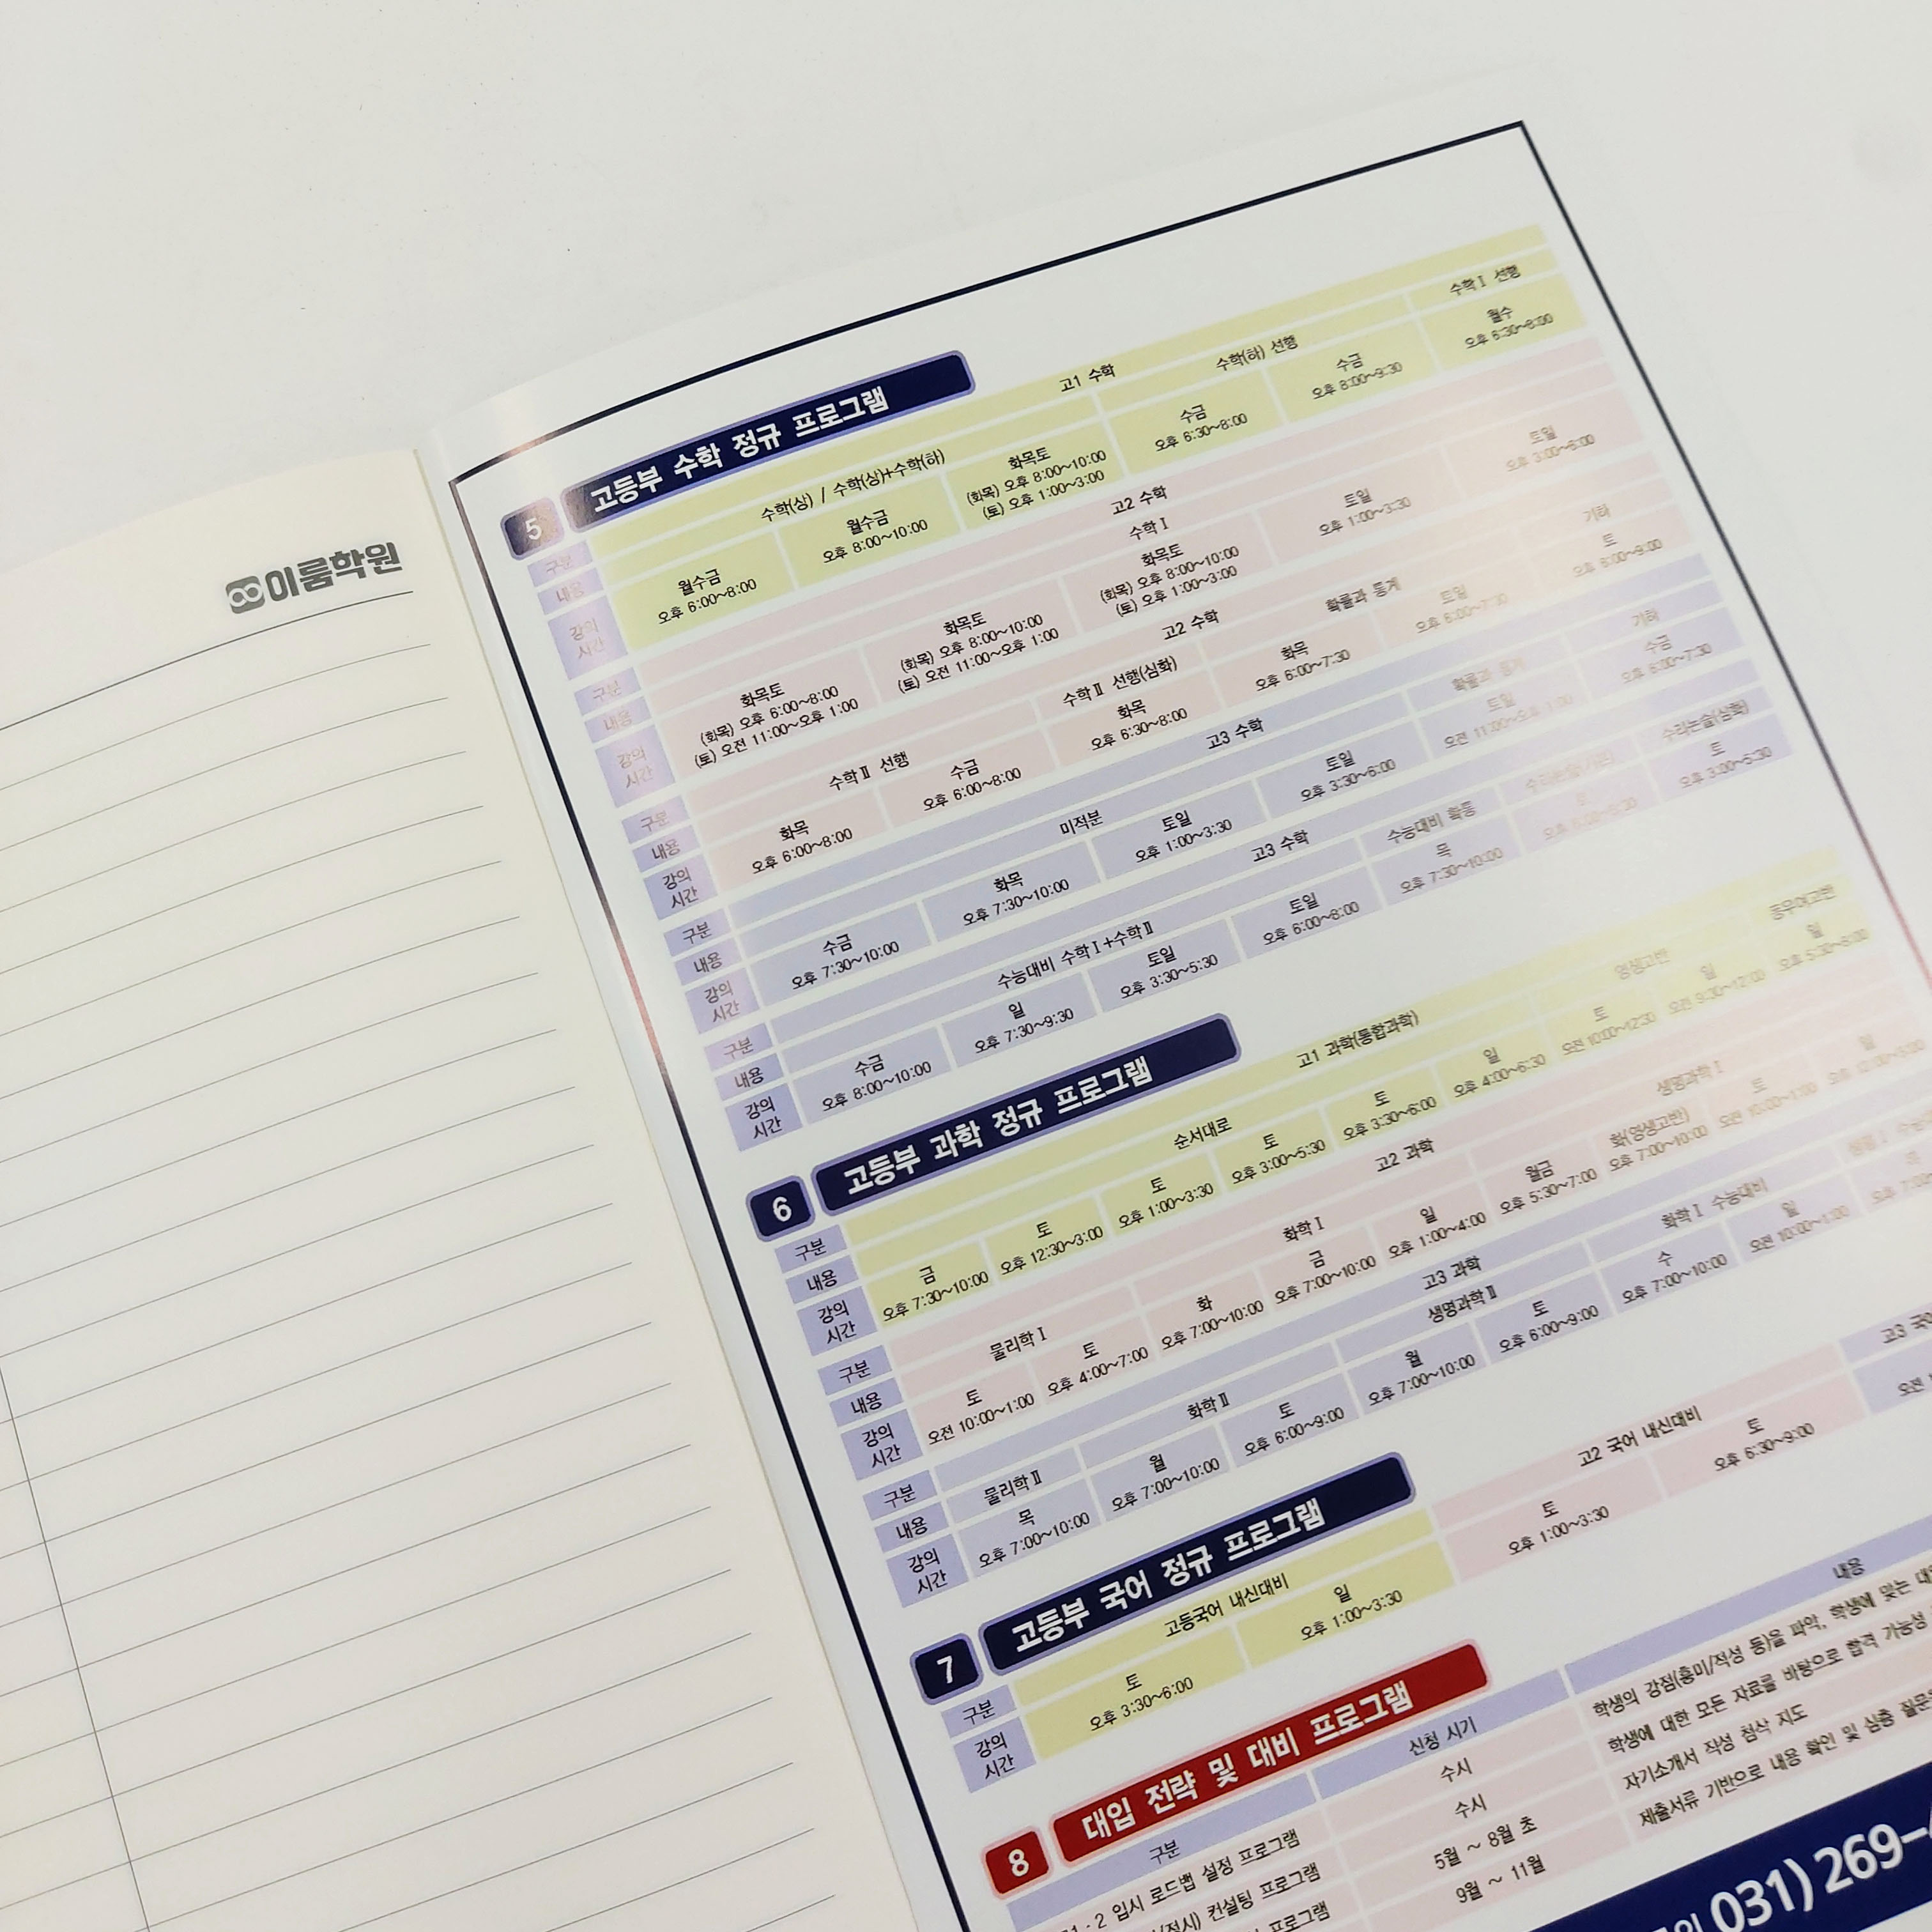 이룸학원
5 고등부 수학 정규 프로그램
구분 고1 수학
내용 수학(상) / 수학(상)+수학(하) 수학(하) 선행 수학Ⅰ 선행
강의 시간 월수금 오후 6:00~8:00 월수금 오후 8:00~10:00 화목토 (화목) 오후 8:00~10:00 (토) 오후 1:00~3:00 수금 오후 6:30~8:00 수금 오후 8:00~9:30 월수 오후 6:30~8:00
구분 고2 수학
내용 수학Ⅰ
강의 시간 화목토 (화목) 오후 6:00~8:00 (토) 오전 11:00~오후 1:00 화목토 (화목) 오후 8:00~10:00 (토) 오전 11:00~오후 1:00 화목토 (화목) 오후 8:00~10:00 (토) 오후 1:00~3:00 토일 오후 1:00~3:30 토일 오후 3:00~6:00
구분 고2 수학
내용 수학Ⅱ 선행 수학Ⅱ 선행(심화) 확률과 통계 기하
강의 시간 화목 오후 6:00~8:00 수금 오후 6:00~8:00 화목 오후 6:30~8:00 화목 오후 6:00~7:30 토일 오후 6:00~7:30 토 오후 6:00~9:00
구분 고3 수학
내용 미적분 확률과 통계 기하
강의 시간 수금 오후 7:30~10:00 화목 오후 7:30~10:00 토일 오후 1:00~3:30 토일 오후 3:30~6:00 토일 오전 11:00~오후 1:00 수금 오후 6:00~7:30
구분 고3 수학
내용 수능대비 수학Ⅰ+수학Ⅱ 수능대비 확통 수리논술(심화)
강의 시간 수금 오후 8:00~10:00 일 오후 7:30~9:30 토일 오후 3:30~5:30 토일 오후 6:00~8:00 목 오후 7:30~10:00 토 오후 3:00~5:30
6 고등부 과학 정규 프로그램
구분 고1 과학(통합과학)
내용 순서대로 영생고반 동우여고반
강의 시간 금 오후 7:30~10:00 토 오후 12:30~3:00 토 오후 1:00~3:30 토 오후 3:00~5:30 토 오후 3:30~6:00 일 오후 4:00~6:30 토 오전 10:00~12:30 일 오전 9:30~12:00 일 오후 5:30~8:00
구분 고2 과학
내용 물리학Ⅰ 화학Ⅰ 생명과학Ⅰ
강의 시간 토 오전 10:00~1:00 토 오후 4:00~7:00 화 오후 7:00~10:00 금 오후 7:00~10:00 일 오후 1:00~4:00 월금 오후 5:30~7:00 화(영생고반) 오후 7:00~10:00 토 오전 10:00~1:00 일
구분 고3 과학
내용 물리학Ⅱ 화학Ⅱ 생명과학Ⅱ 화학Ⅰ 수능대비
강의 시간 목 오후 7:00~10:00 월 오후 7:00~10:00 토 오후 6:00~9:00 월 오후 7:00~10:00 토 오후 6:00~9:00 수 오후 7:00~10:00 일 오전 10:00~1:00
7 고등부 국어 정규 프로그램
구분 고등국어 내신대비 고2 국어 내신대비 고3
강의 시간 토 오후 3:30~6:00 일 오후 1:00~3:30 토 오후 1:00~3:30 토 오후 6:30~9:00 오전
8 대입 전략 및 대비 프로그램
구분 신청 시기 내용
2 입시 로드맵 설정 프로그램 수시 학생의 강점(흥미/적성 등)을 파악, 학생에 맞는
컨설팅 프로그램 수시 학생에 대한 모든 자료를 바탕으로 합격 가능성
프로그램 5월 ~ 8월 초 자기소개서 작성 첨삭 지도
9월 ~ 11월 제출서류 기반으로 내용 확인 및 심층
031) 269-